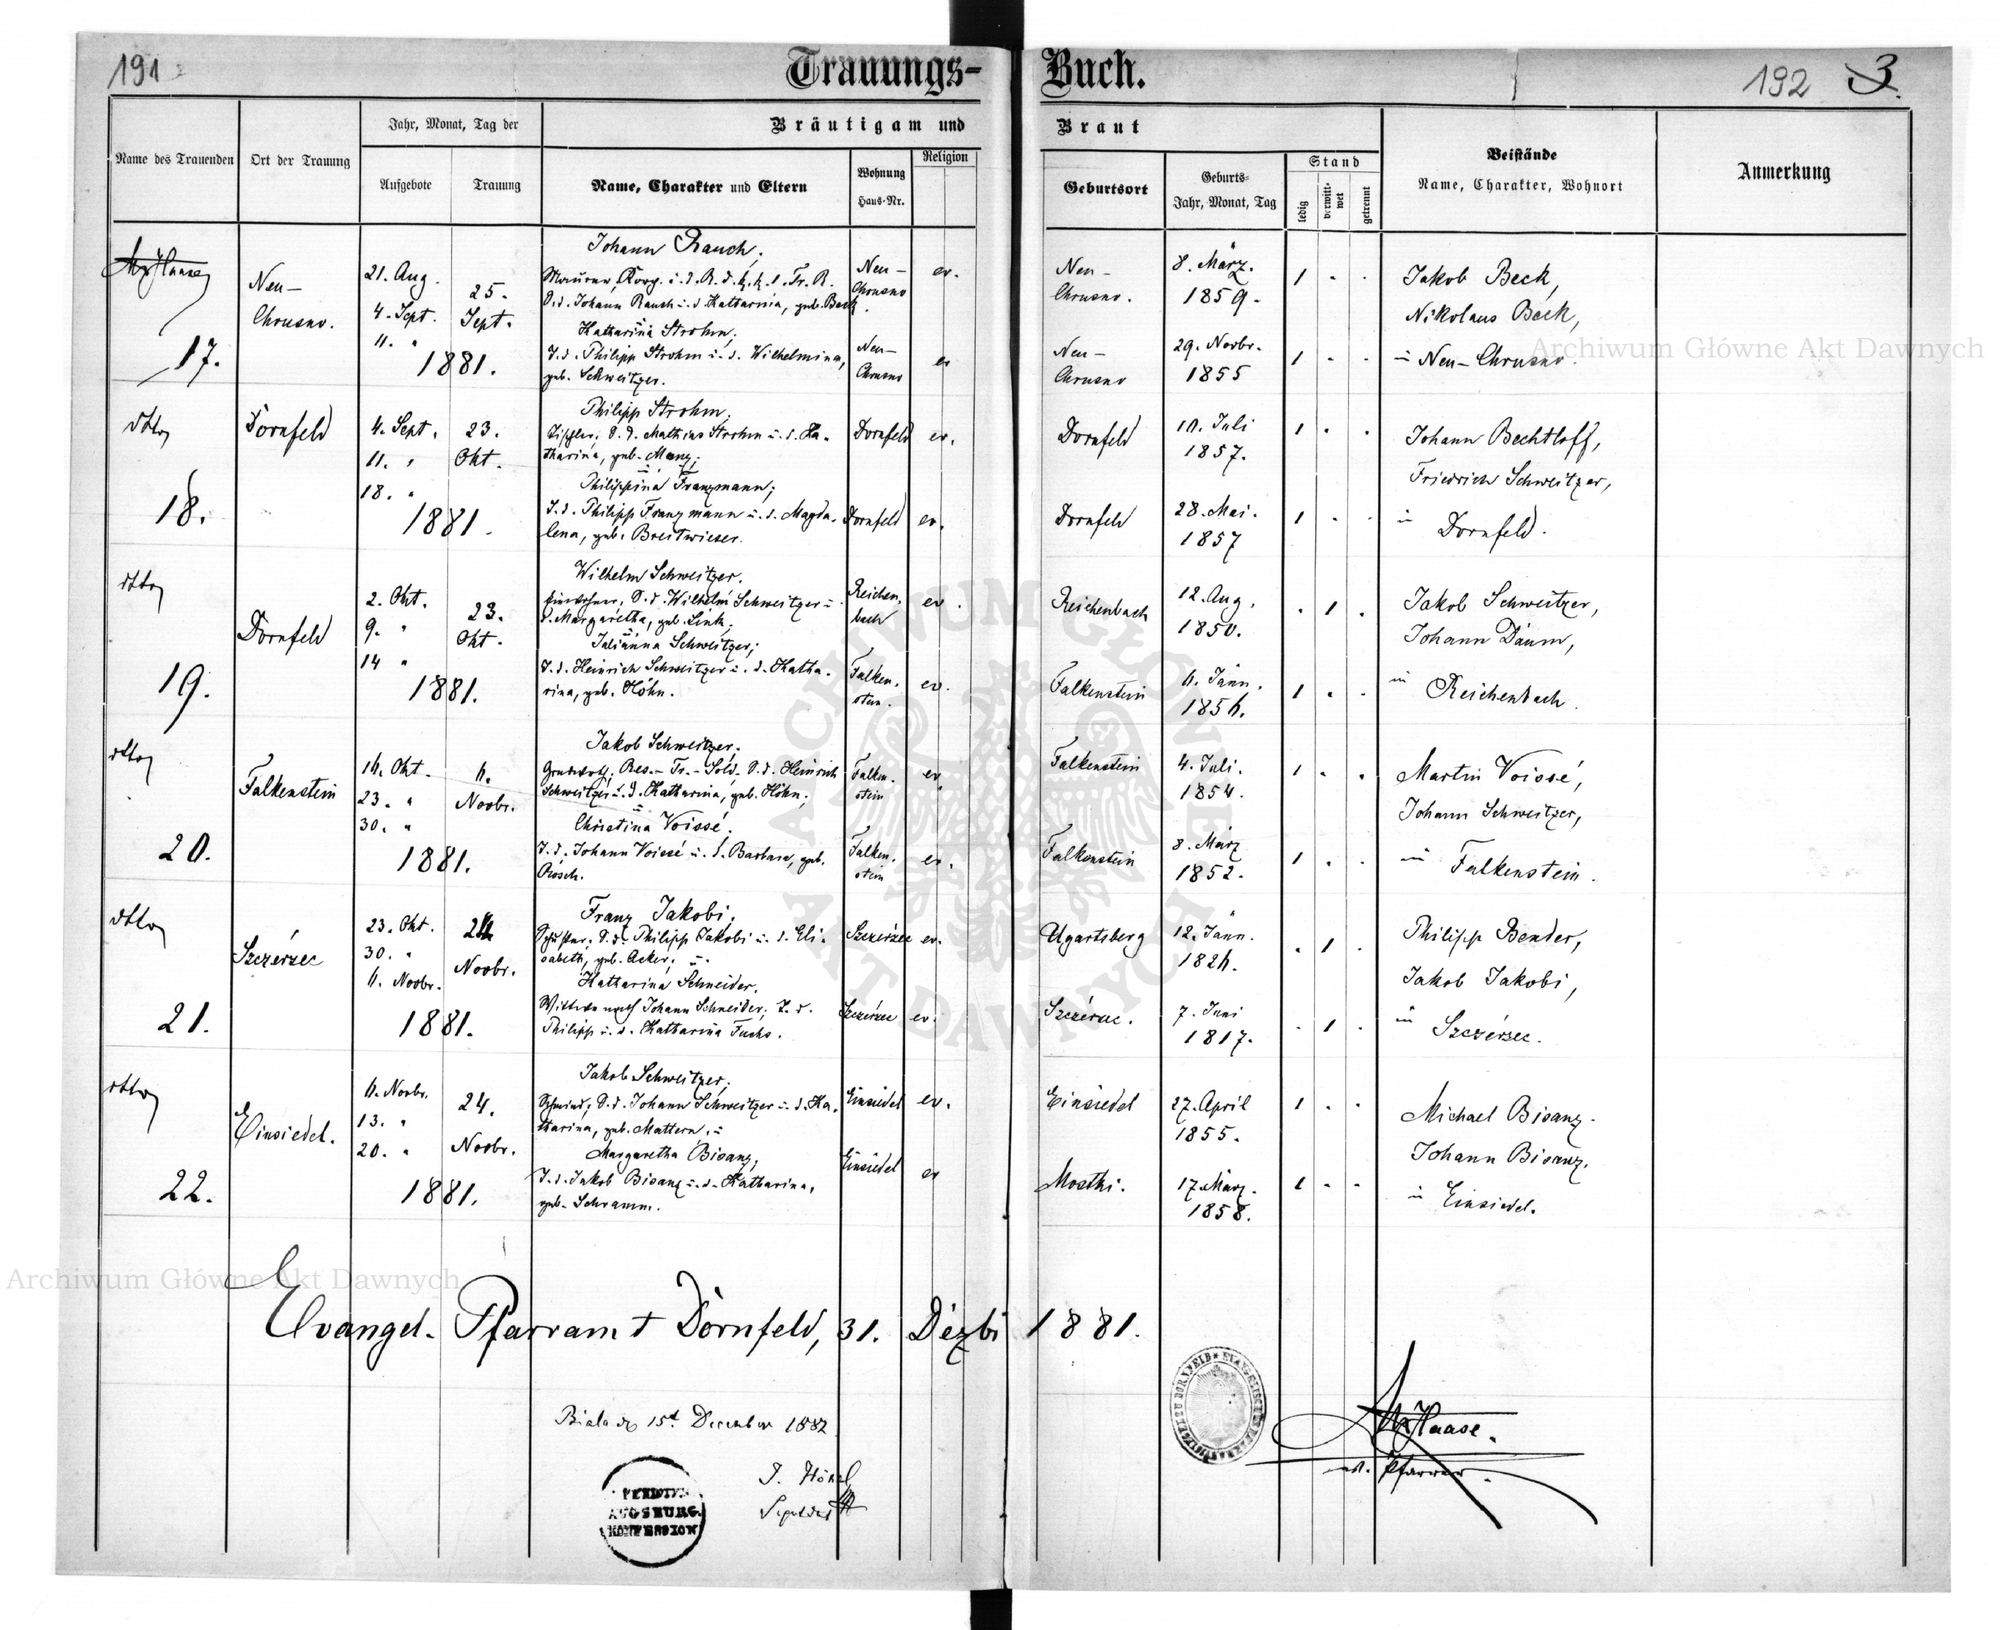 191
Trauungs-Buch.
192 3.
Name des Trauenden
Ort der Trauung
Jahr, Monat, Tag der
Aufgebote
Trauung
Bräutigam und Braut
Name, Charakter und Eltern
Wohnung
Haus-Nr.
Religion
Geburtsort
Geburts-
Jahr, Monat, Tag
Stand
ledig
verwitt-
wet
getrennt
Beistände
Name, Charakter, Wohnort
Anmerkung
Haase
17.
Neu-
Chrusno.
21. Aug.
4. Sept.
11. "
25.
Sept.
1881.
Johann Rauch,
S. d. Johann Rauch u. d. Katharina, geb. Beck.
Neu-
Chrusno
ev.
Neu-
Chrusno.
8. März.
1859.
1 - -
Katharina Strohm,
T. d. Philipp Strohm u. d. Wilhelmina,
geb. Schweitzer.
Neu-
Chrusno
ev
Neu-
Chrusno
29. Novbr.
1855
1 - -
Jakob Beck,
Nikolaus Beck,
in Neu-Chrusno
dtto
18.
Dornfeld
4. Sept.
11. "
18. "
23.
Okt.
1881.
Philipp Strohm,
Tischler, S. d. Mathias Strohm u. d. Ka-
tharina, geb. Manz;
Dornfeld
ev.
Dornfeld
10. Juli
1857.
1 - -
Philippina Franzmann;
T. d. Philipp Franzmann u. d. Magda-
lena, geb. Breitwieser.
Dornfeld
ev.
Dornfeld
28. Mai.
1857
1 - -
Johann Bechtloff,
Friedrich Schweitzer,
in
Dornfeld.
dtto
19.
Dornfeld
2. Okt.
9. "
14 "
23.
Okt.
1881.
Wilhelm Schweitzer.
Einwohner, S. d. Wilhelm Schweitzer u.
d. Margaretha, geb. Link,
Reichen-
bach
ev.
Reichenbach
12. Aug.
1850.
- 1 -
Julianna Schweitzer;
T. d. Heinrich Schweitzer u. d. Katha-
rina, geb. Höhn.
Falken-
stein.
ev.
Falkenstein
6. Jänn.
1856.
1 - -
Jakob Schweitzer,
Johann Daum,
in Reichenbach.
dtto
20.
Falkenstein
16. Okt.
23. "
30. "
6.
Novbr.
1881.
Jakob Schweitzer,
Grundwirth, Res.-Tr.-Sold. S. d. Heinrich
Schweitzer u. d. Katharina, geb. Höhn;
Falken-
stein
ev.
Falkenstein
4. Juli.
1854.
1 - -
Christina Voissé.
T. d. Johann Voissé u. d. Barbara, geb.
Rösch.
Falken-
stein
ev.
Falkenstein
8. März
1852.
1 - -
Martin Voissé,
Johann Schweitzer,
in Falkenstein.
dtto
21.
Szczérzec
23. Okt.
30. "
6. Novbr.
Novbr.
1881.
Franz Jakobi,
Schuster, S. d. Philipp Jakobi u. d. Eli-
sabeth, geb. Acker, u.
Szczérzec
ev.
Ugartsberg
12. Jänn.
1826.
- 1 -
Katharina Schneider.
Wittwe nach Johann Schneider, T. d.
Philipp u. d. Katharina Fuchs.
Szczérzec
ev.
Szczérzec.
7. Juni
1817.
- 1 -
Philipp Bender,
Jakob Jakobi,
in Szczérzec.
dtto
22.
Einsiedel.
6. Novbr.
13. "
20. "
24.
Novbr.
1881.
Jakob Schweitzer,
Schmied, S. d. Johann Schweitzer u. d. Ka-
tharina, geb. Mattern, u
Einsiedel
ev.
Einsiedel
27. April
1855.
1 - -
Margaretha Bisanz,
T. d. Jakob Bisanz u. d. Katharina,
geb. Schramm.
Einsiedel
ev
Mostki.
17. März.
1858.
1 - -
Michael Bisanz.
Johann Bisanz.
in Einsiedel.
Evangel. Pfarramt Dornfeld, 31. Dezbr 1881.
Haase.
ev. Pfarrer.
Biala 15t December 1882
J. Hönel
AUGSBURG.
KONFESSION
Archiwum Główne Akt Dawnych
Archiwum Główne Akt Dawnych
ARCHIWUM GŁÓWNE
AKT DAWNYCH